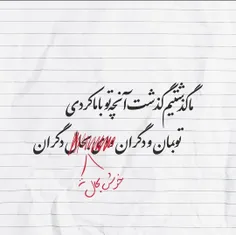 ما گذشتیم گذشت آنچه تو با ما کردی
تو بمان و دگران وای بحال دگران
خوش بحال